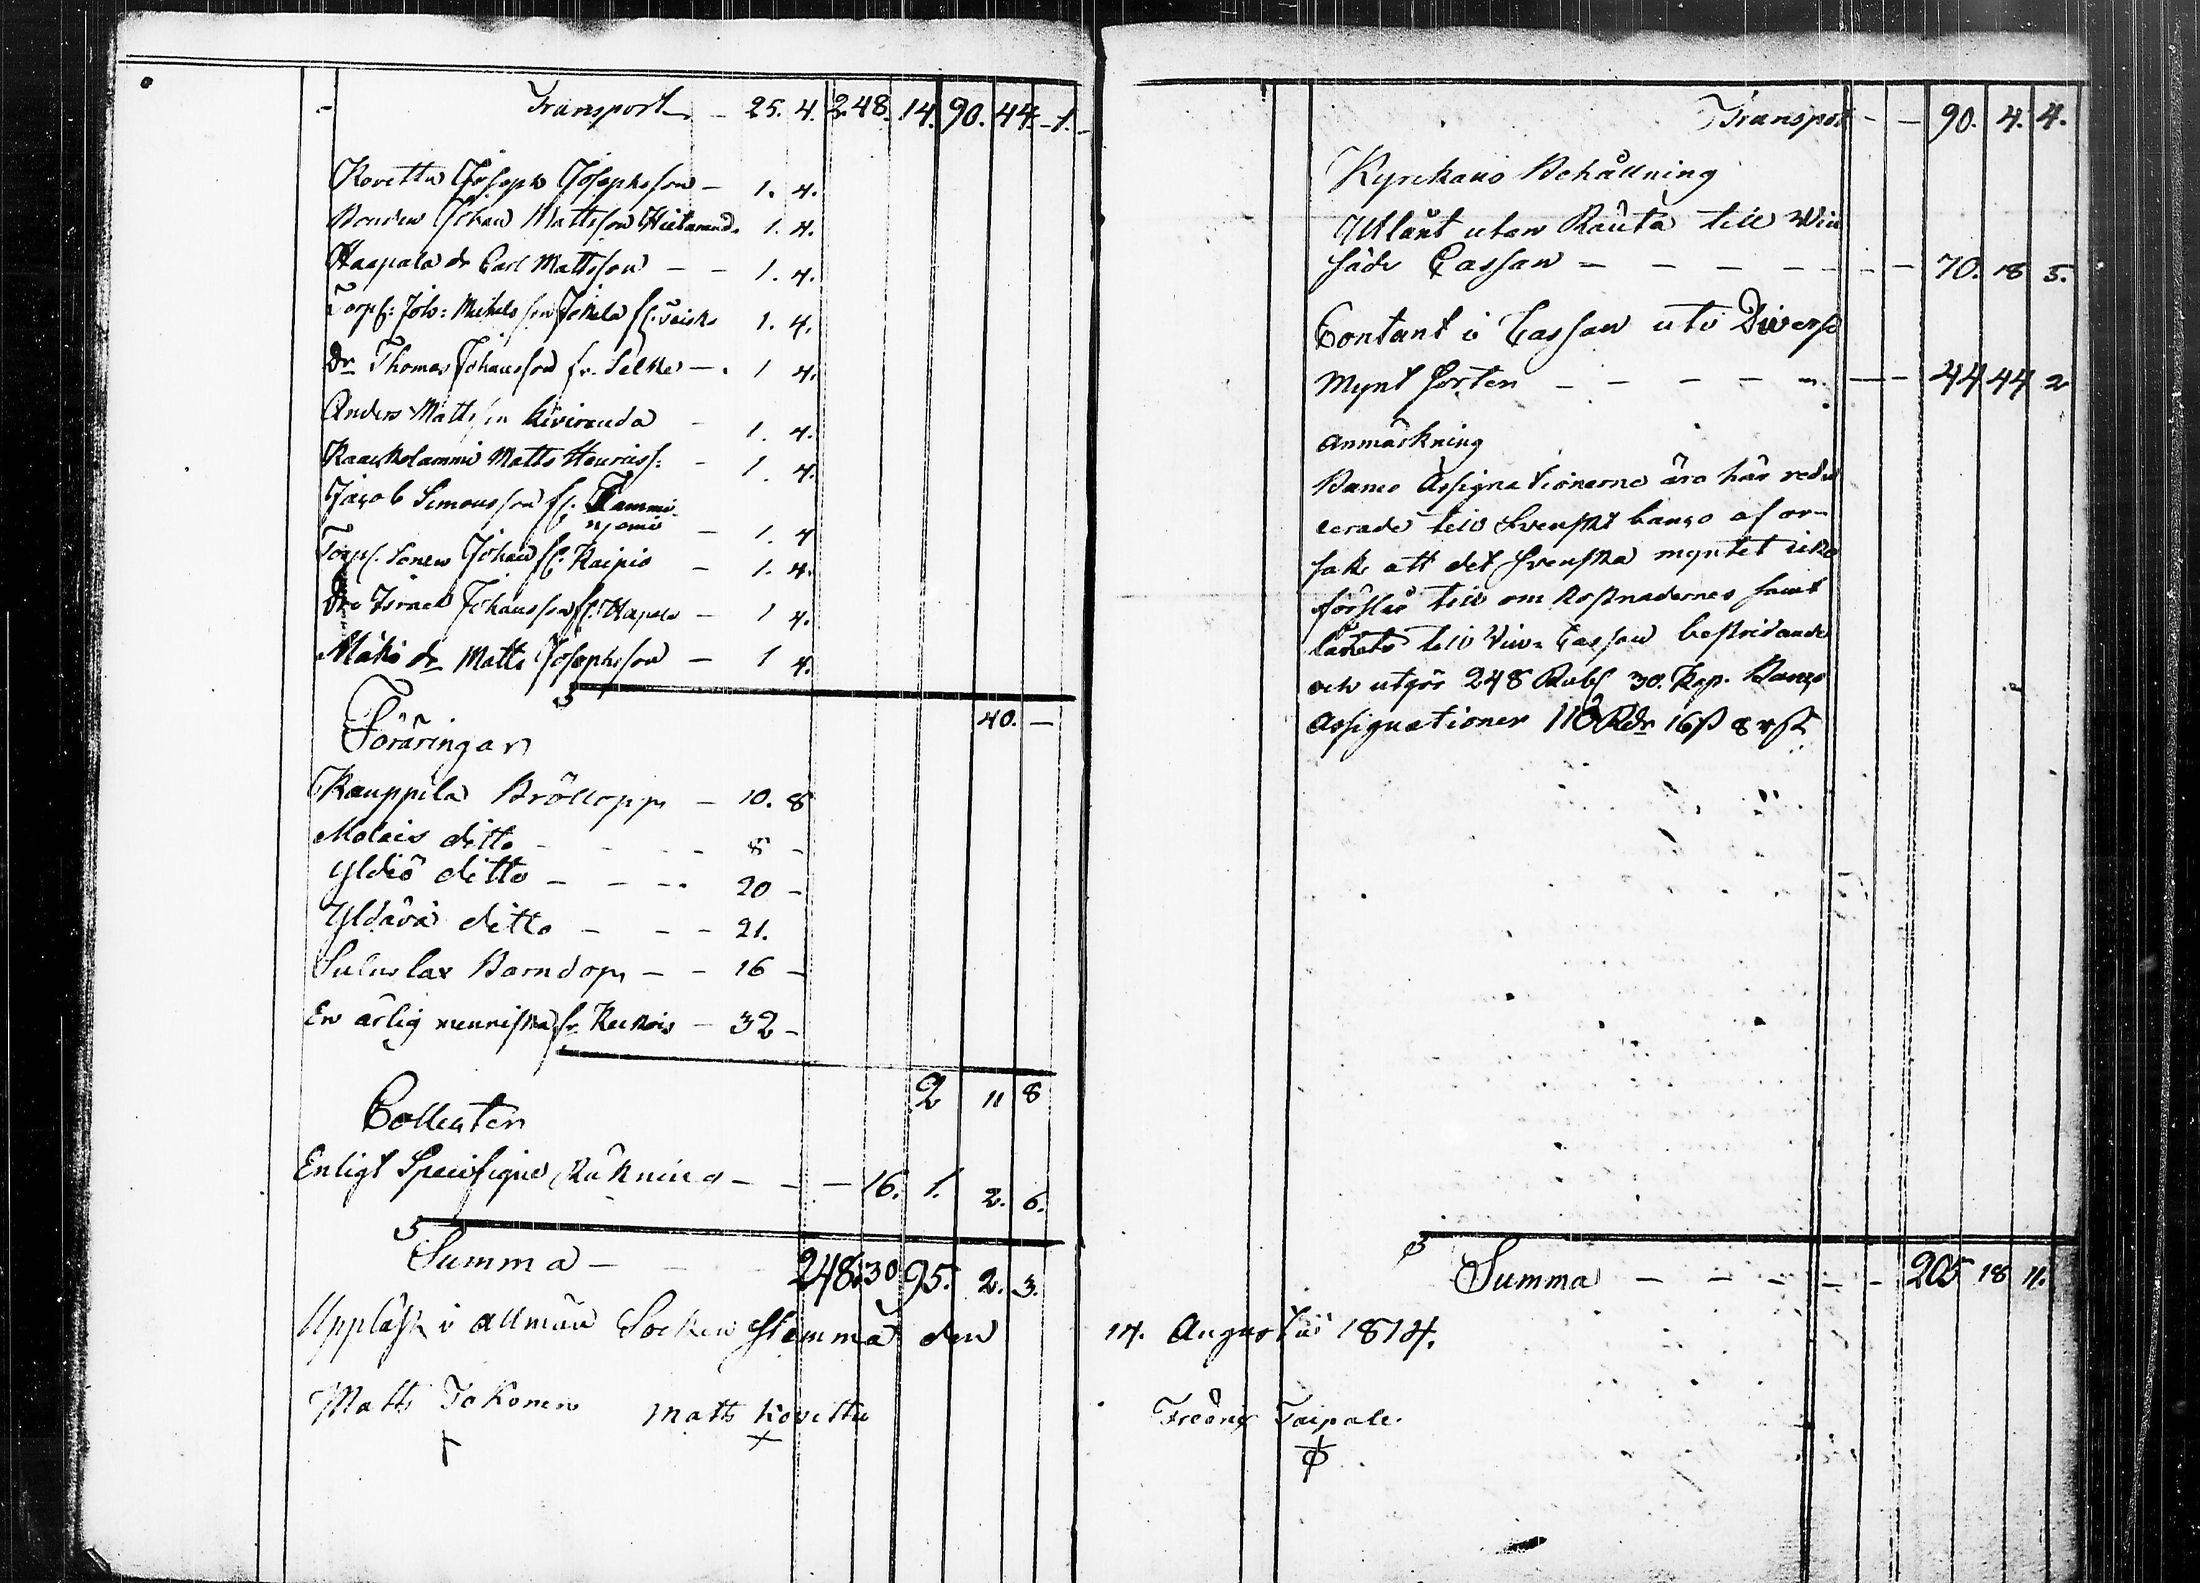 Transport - 25. 4. 248. 14. 90. 44. 1.
Kovettu Joseph Josephsson - 1. 4.
Bonden Johan Mattsson Hietarand. 1. 4.
Haapala dr Carl Mattsson - - 1. 4.
Torpf: Joh: Michelsson Jokela 1. 4.
Dr Thomas Johansson fr. Selke - 1 4.
Anders Mattsson Kiviranda - 1. 4.
Matts Henricss: - 1. 4.
Jacob Simonsson fr. Tammi
niemi - 1. 4
Torpf. Sonen Johan fr. Kaipio - 1. 4.
Dr Israel Johansson fr. Hapala - 1 4.
Mäki dr Matts Josephsson - 1 4.
40. -
Föräringar
Kauppila Bröllopp - 10. 8
Molais ditto - - - 8 -
Yldiö ditto - - - 20 -
Yldävä ditto - - - 21.
Barndop - - 16 -
En ärlig menniska fr - 32 -
2 11 8
Collecten
Enligt Specifique Räkning - - - 16. 1. 2. 6.
Summa - 248. 30 95. 2. 3.
Uppläst i allmän Sockenstemma den
Matts Jokonen Matts Kovettu
Transport - - 90. 4. 4.
Kyrckans Behållning
Utlånt utan Ränta till Vin
säds Cassan - - - - 70. 18 5.
Contant i Cassan uti Diverse
Mynt sorter - - - - 44 44 2
Anmärkning
Banco Assignationerne äro här redu
cerade till Svenskt banco af or-
sak att det Svenska myntet icke
förslår till omkostnadernes samt
lånets till Vin-Cassan bestridande
och utgör 248 Rubl 30. Kop. Banco
Assignationer 110 Rdr 16 ß 8 rst
Summa - - - - 205 18 11.
14. Augusti 1814.
Fredric Taipale.